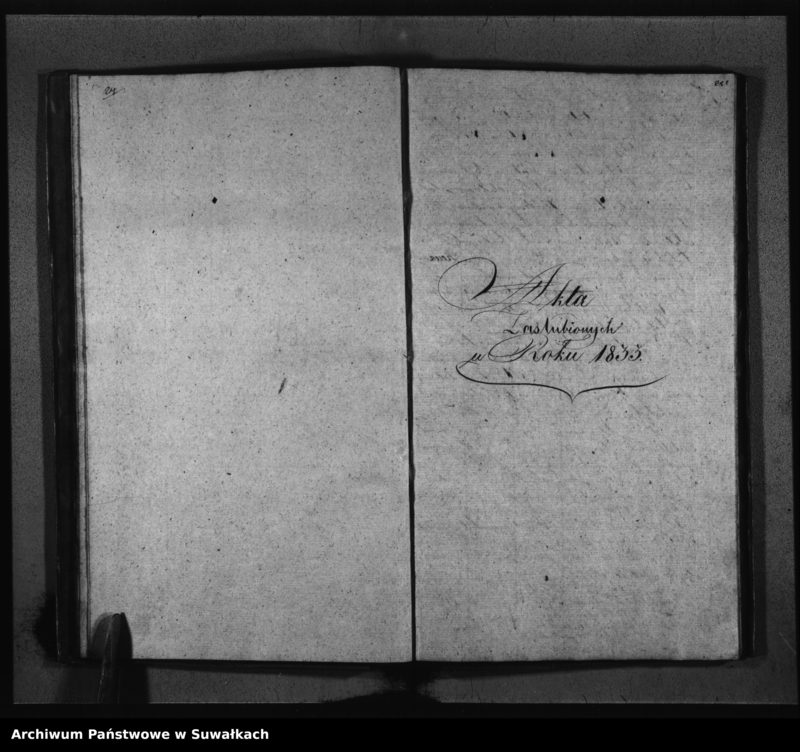 Akta
Zaslubionych
w Roku 1833.
Archiwum Państwowe w Suwałkach